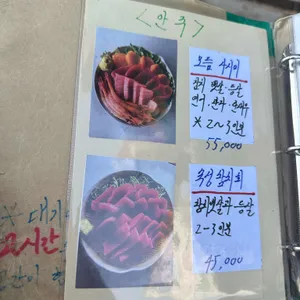 <안주>
모듬 사시미
참치 뱃살·등살
연어, 한치, 생새우
※ 2~3인분
55,000
숙성 참치회
참치뱃살과·등살
2-3인분
45,000
※ 대기
2시간